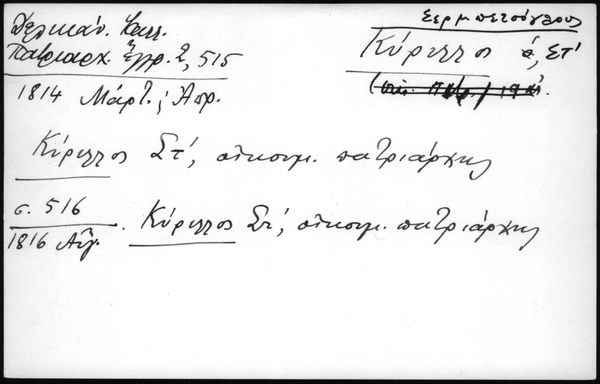 Δελικάν. Καλλ.
Πατριαρχ. Ἔγγρ. 2, 515
1814 Μάρτ. ; Ἀπρ.
Σερμπετσόγλους
Κύριλλος ΣΤ΄
Κύριλλος ΣΤ΄, οἰκουμ. πατριάρχης
σ. 516
1816 Αὔγ. Κύριλλος ΣΤ΄, οἰκουμ. πατριάρχης